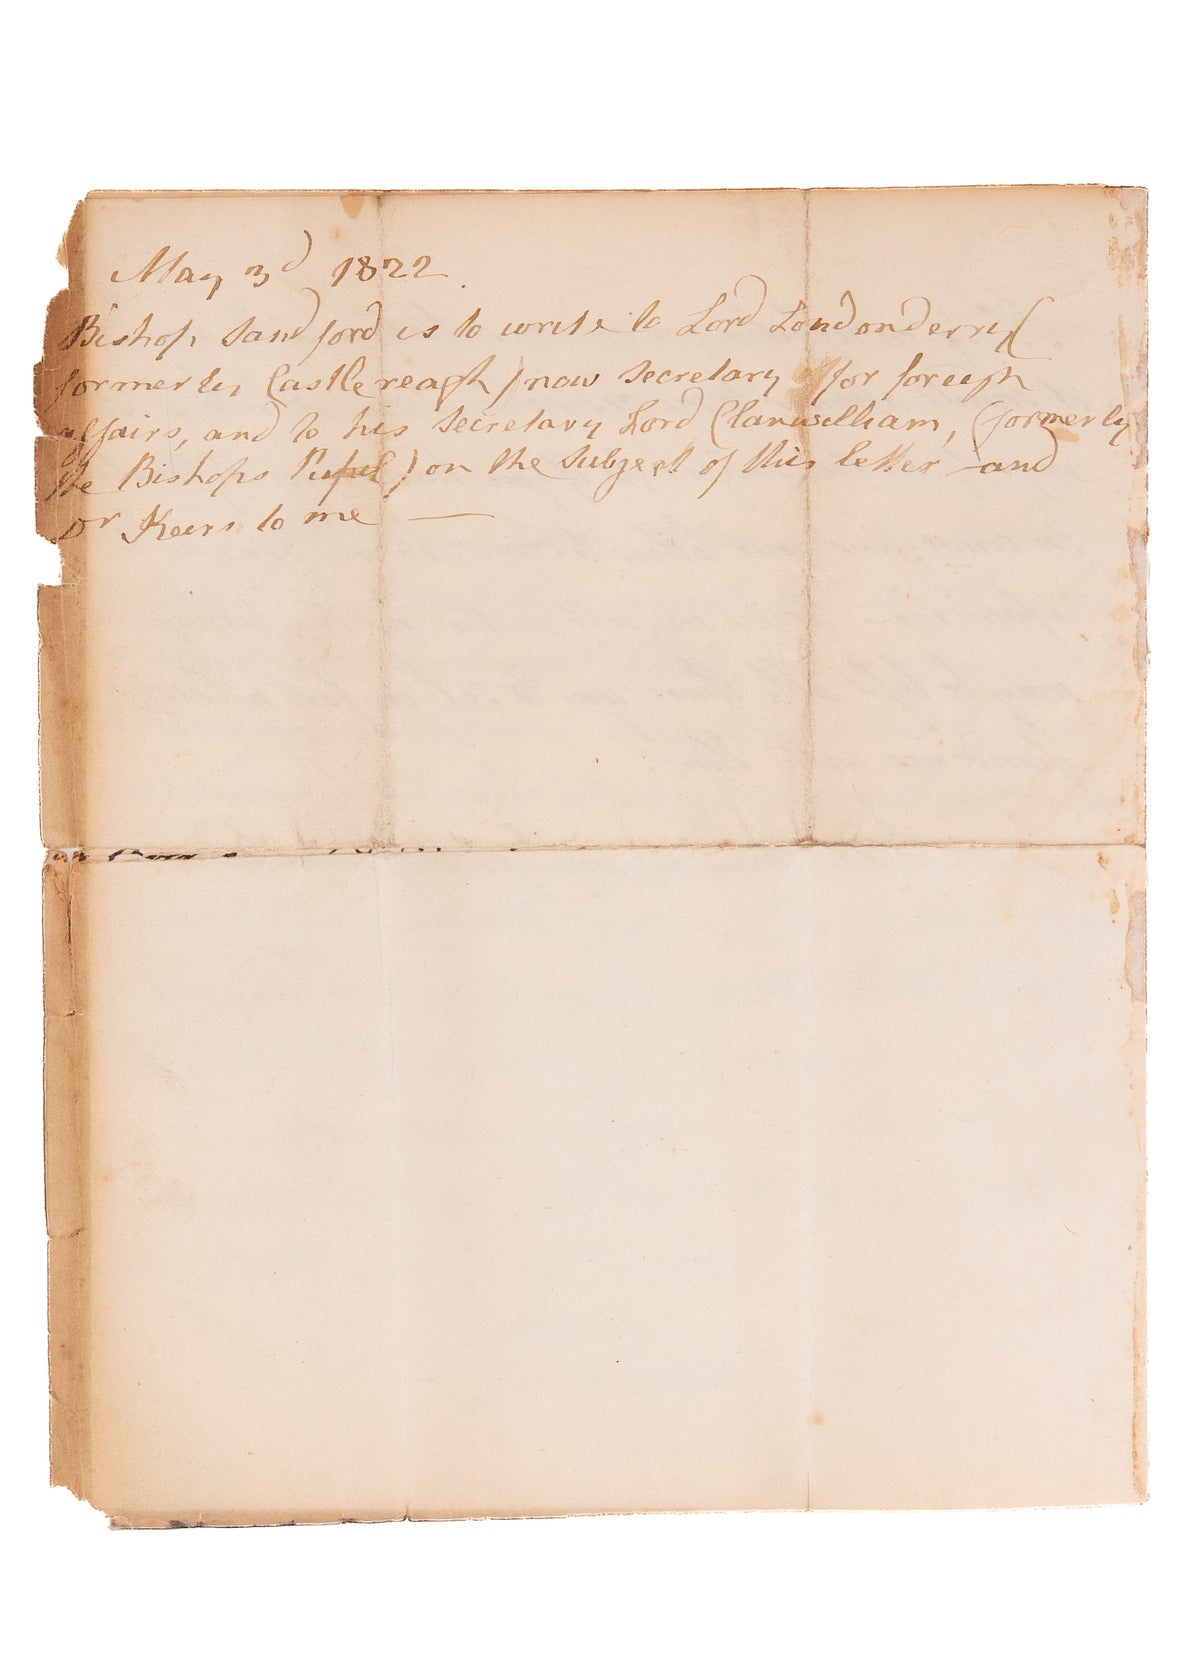 May 3d 1822
Bishop Sandford is to write to Lord Londonderry (
formerly Castlereagh) now Secretary for foreign
affairs, and to his Secretary Lord Clanwilliam, (formerly
the Bishops Pupil) on the Subject of this letter and
Dr Keirs to me —